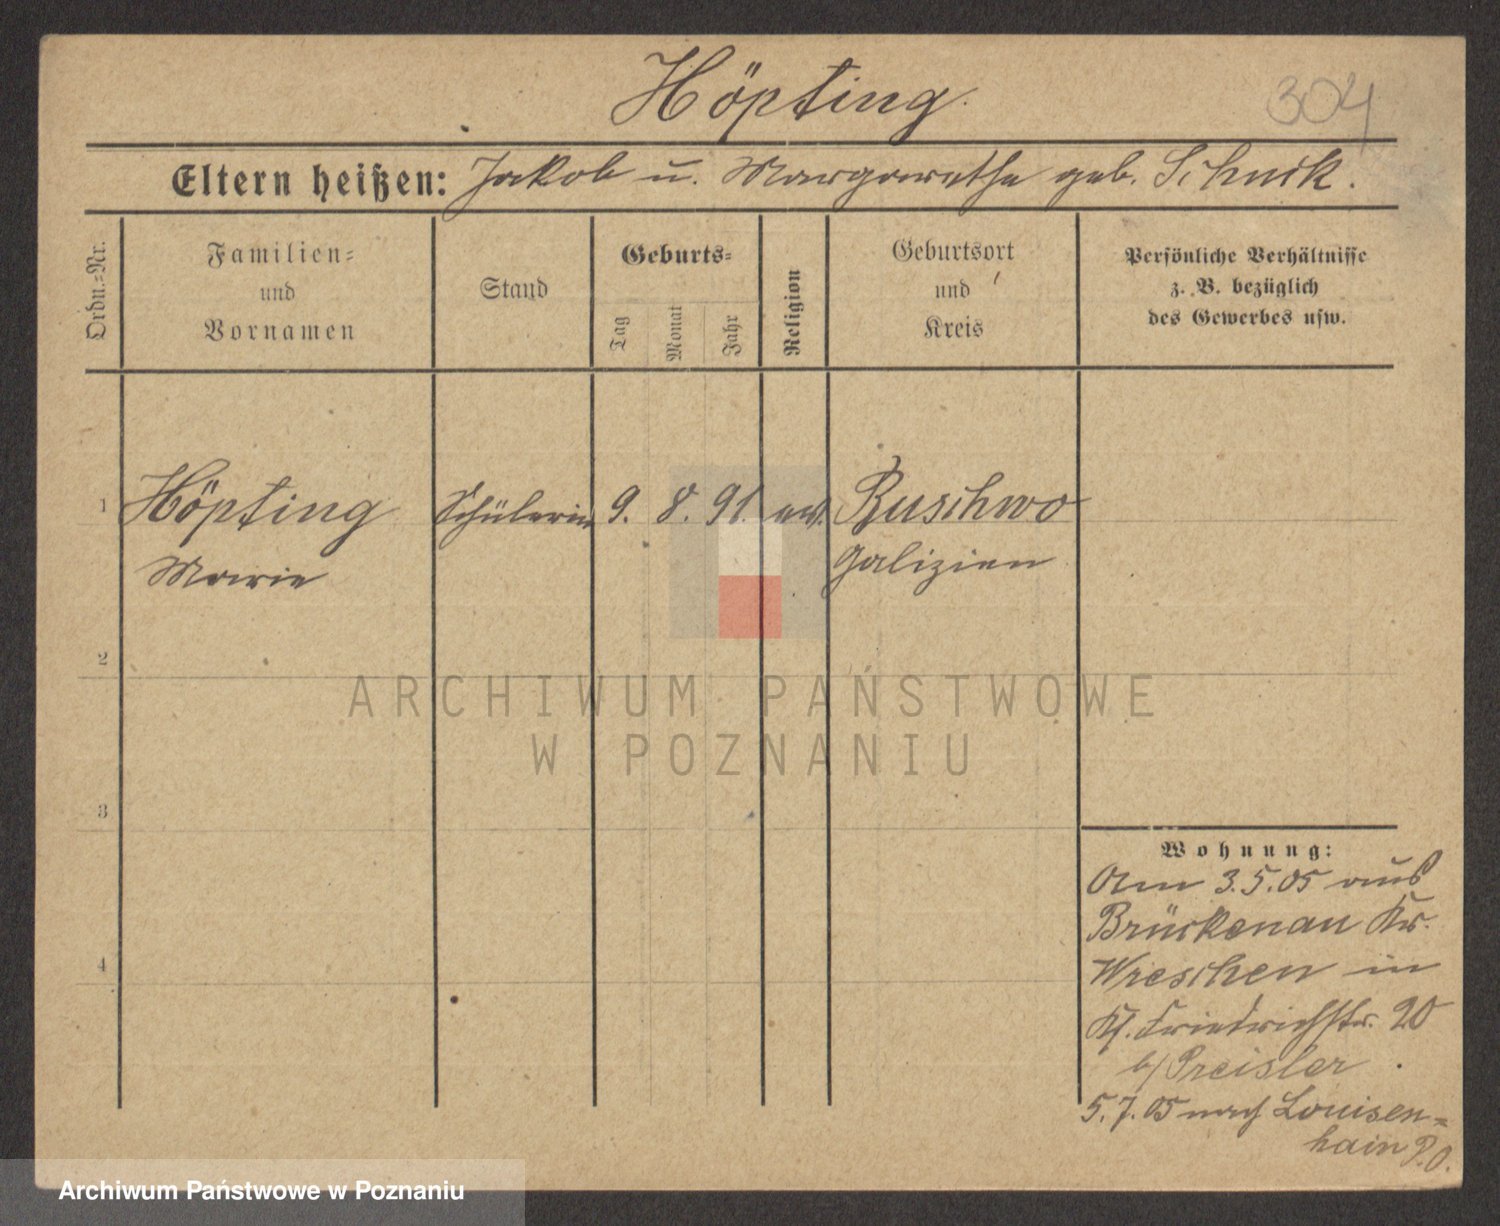 Höpting.
304
Eltern heißen: Jakob u. Margarethe geb. Schuck.
Ordn.=Nr.
Familien=
und
Vornamen
Stand
Geburts=
Tag
Monat
Jahr
Religion
Geburtsort
und
Kreis
Persönliche Verhältnisse
z. B. bezüglich
des Gewerbes usw.
1
Höpting
Marie
Schülerin
9. 8. 91.
ev.
Buschwo
Galizien
2
ARCHIWUM PAŃSTWOWE
W POZNANIU
3
Wohnung:
Am 3.5.05 aus
Brückenau Kr.
Wreschen in
Kl. Friedrichstr. 20
b/ Preisler.
4
5.7.05 nach Louisen=
hain P.O.
Archiwum Państwowe w Poznaniu